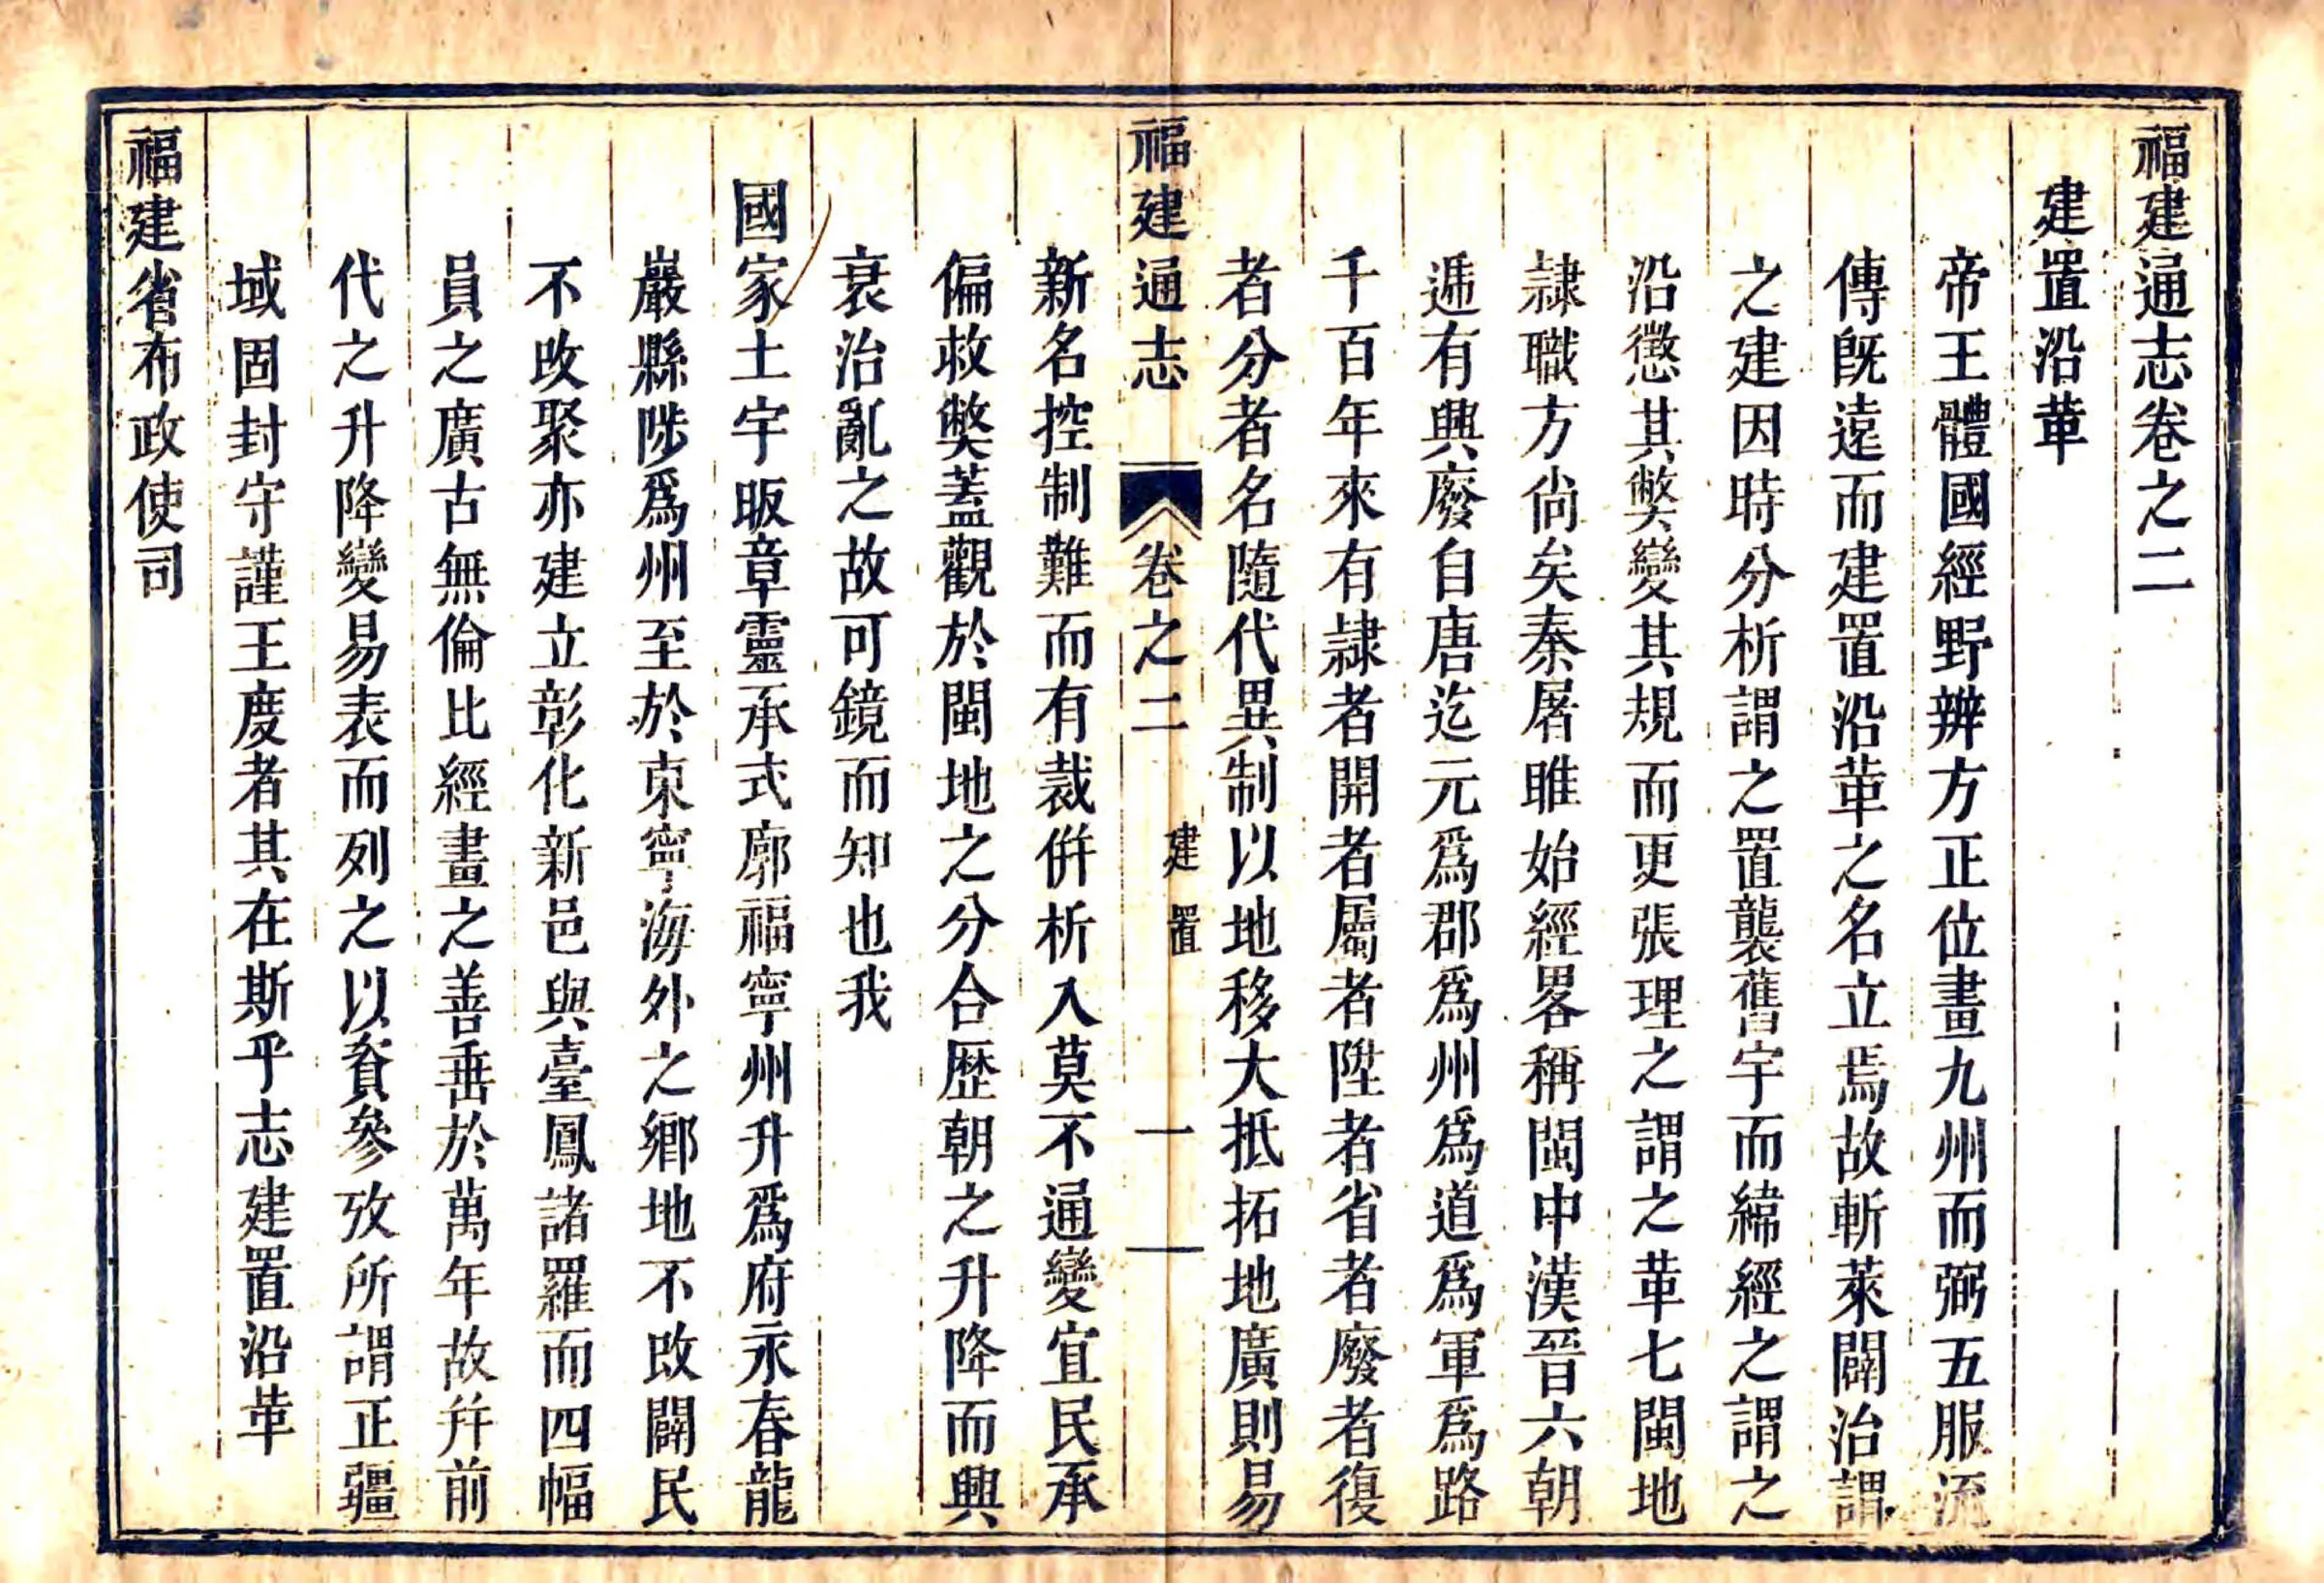 福建通志卷之二
建置沿革
帝王體國經野辨方正位畫九州而弼五服流
傳旣遠而建置沿革之名立焉故斬萊闢治謂
之建因時分析謂之置襲舊宇而緯經之謂之
沿懲其獘變其規而更張理之謂之革七閩地
隷職方尙矣秦屠睢始經畧稱閩中漢晉六朝
遞有興廢自唐迄元爲郡爲州爲道爲軍爲路
千百年來有隷者開者屬者陞者省者廢者復
者分者名隨代異制以地移大抵拓地廣則易
福建通志
卷之二
建置
一
新名控制難而有裁倂析入莫不通變宜民承
偏救獘蓋觀於閩地之分合歴朝之升降而興
衰治亂之故可鏡而知也我
國家土宇昄章靈承式廓福寧州升爲府永春龍
巖縣陟爲州至於東寧海外之鄉地不改闢民
不改聚亦建立彰化新邑與臺鳳諸羅而四幅
員之廣古無倫比經畫之善垂於萬年故幷前
代之升降變易表而列之以資參攷所謂正疆
域固封守謹王度者其在斯乎志建置沿革
福建省布政使司